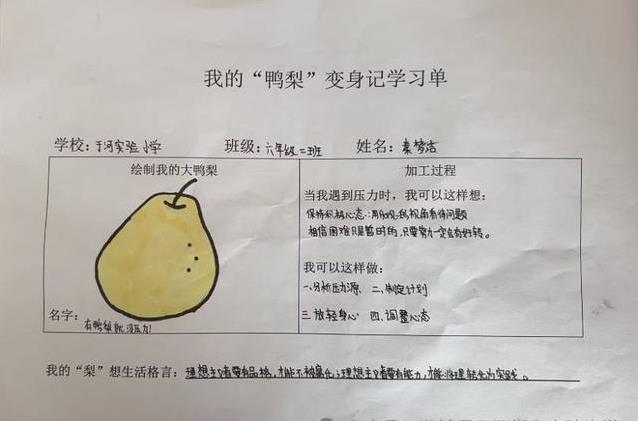 我的“鸭梨”变身记学习单
学校：于河实验小学 班级：六年级二班 姓名：秦梦洁
绘制我的大鸭梨
加工过程
当我遇到压力时，我可以这样想：
保持积极心态：用乐观视角看待问题
相信困难只是暂时的，只要努力一定会有好转。
我可以这样做：
一、分析压力源 二、制定计划
三、放轻身心 四、调整心态
名字：有鸭梨就没压力！
我的“梨”想生活格言：理想主义者要有品格，才能不被腐化；理想主义者要有能力，才能将理转化为实践。